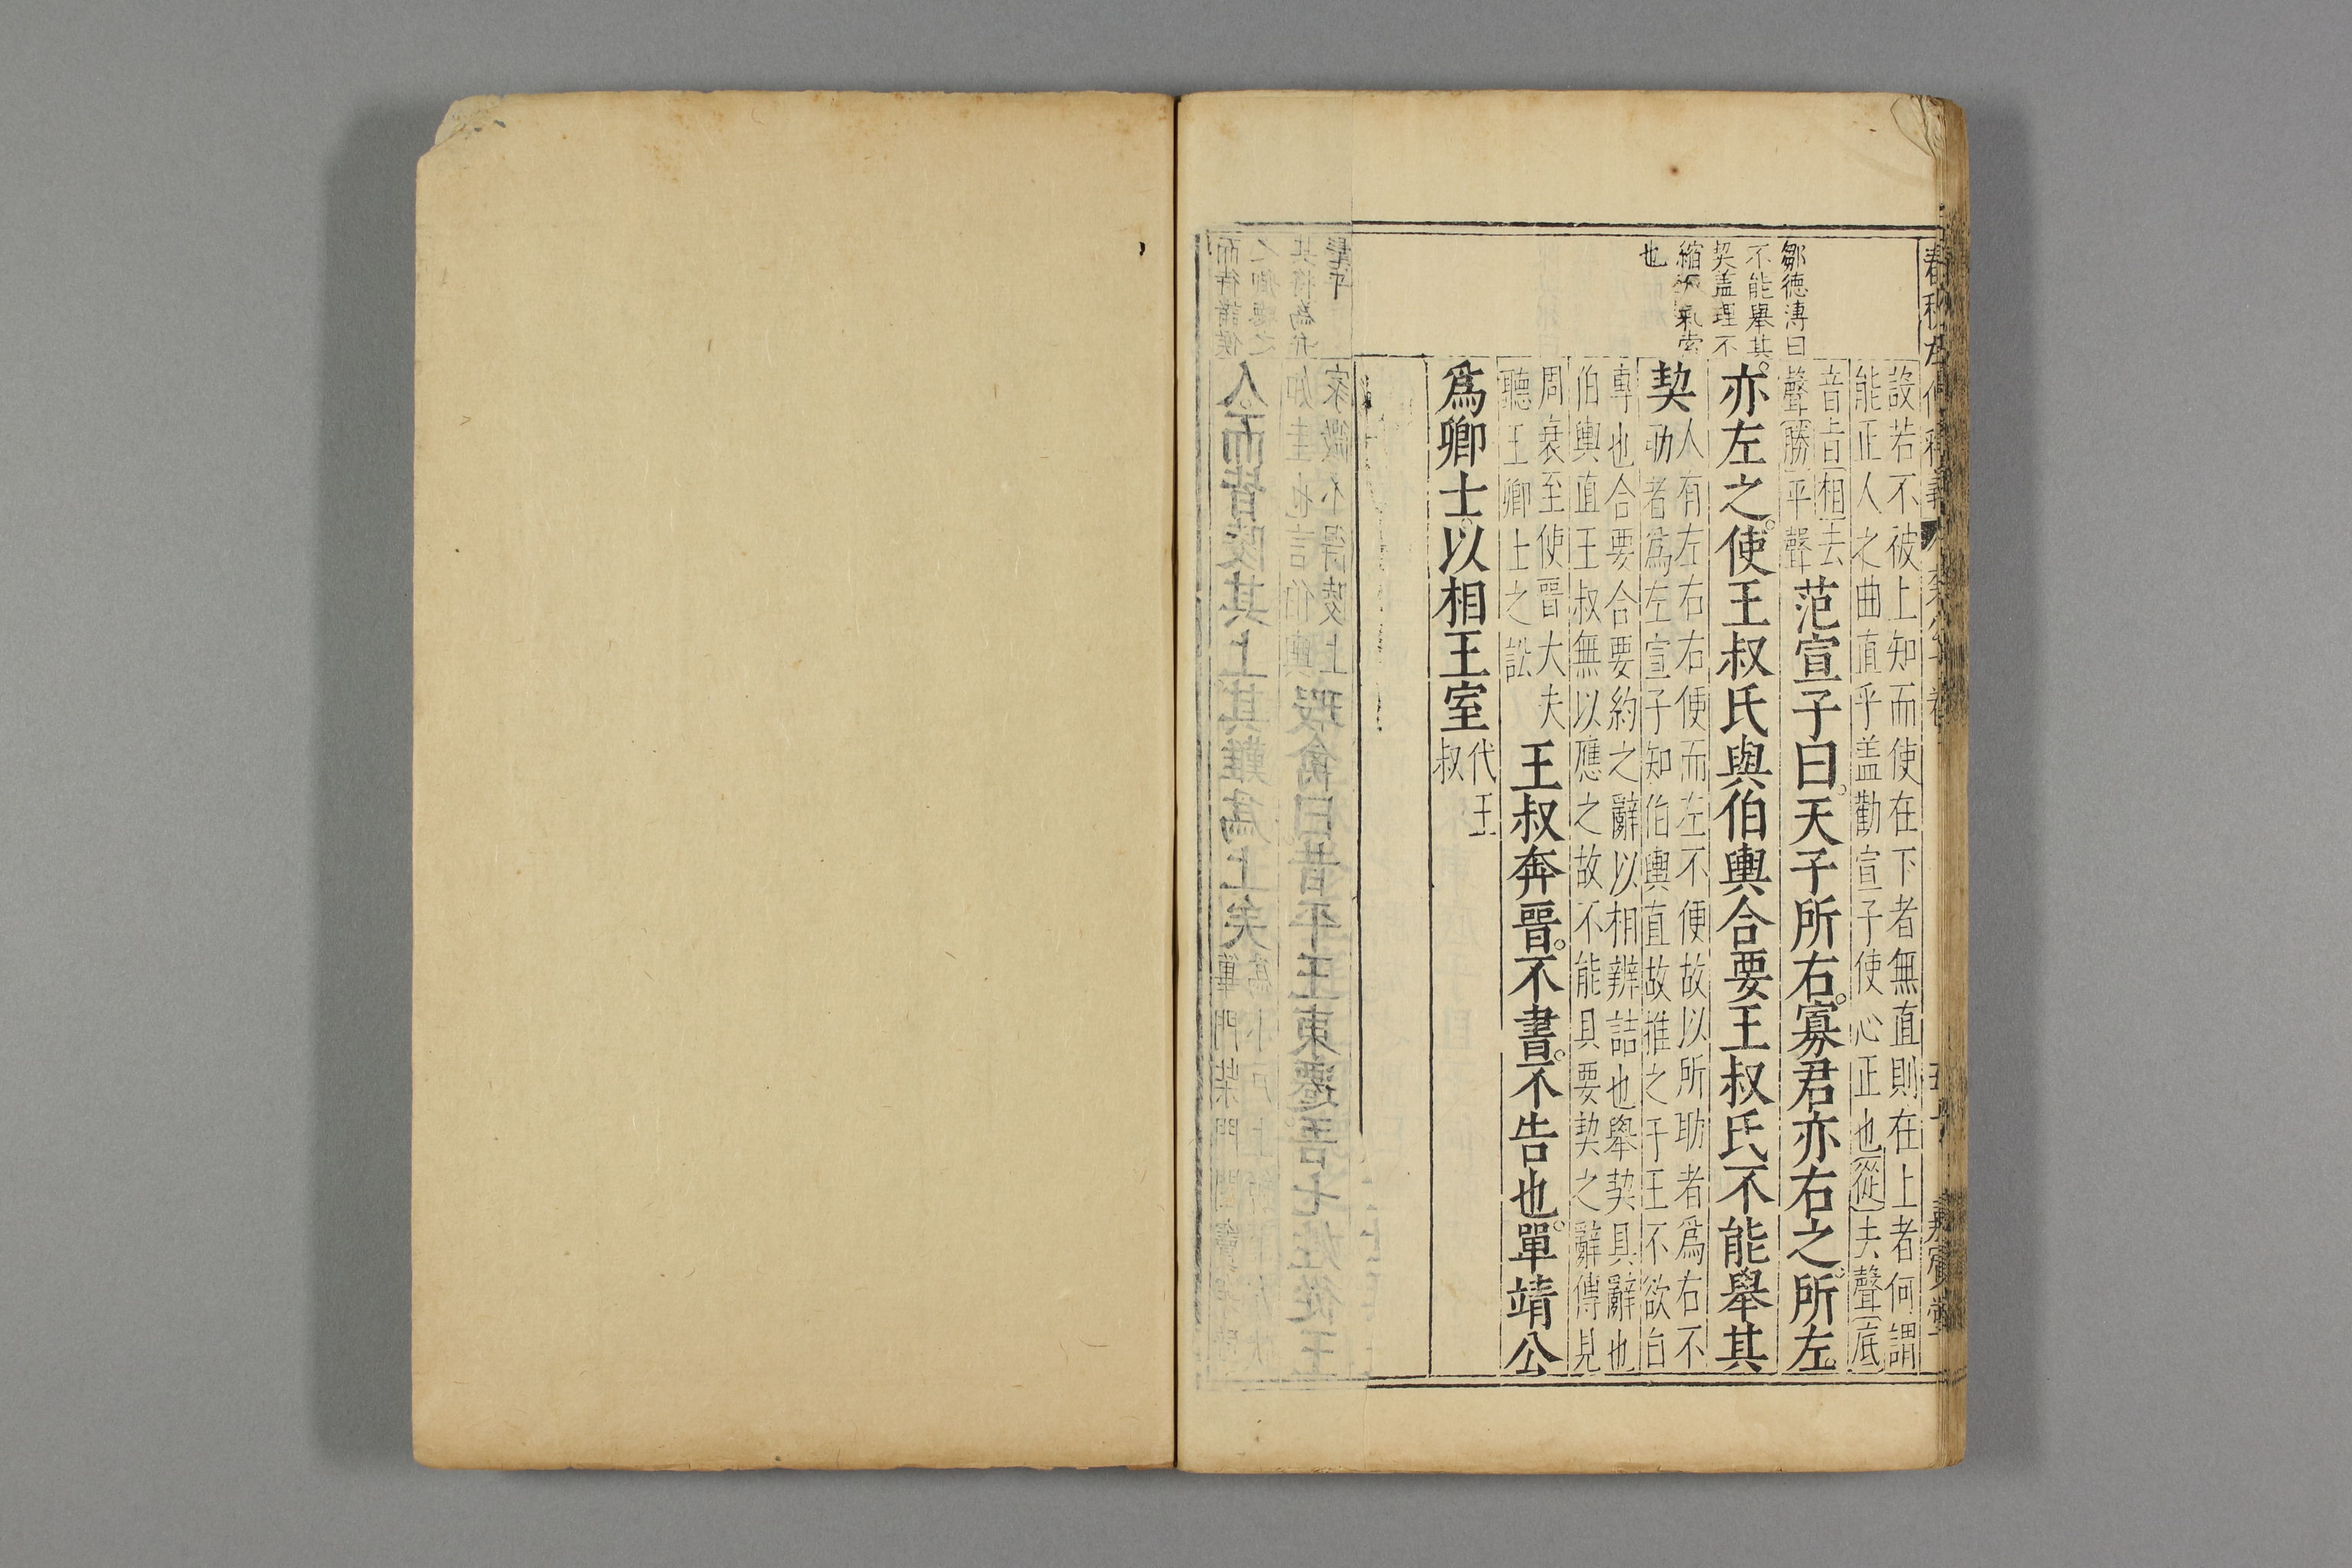 鄒德溥曰
不能舉其
契盖理不
縮
也
設若不被上知而使在下者無直則在上者何謂
能正人之曲直乎盖勸宣子使心正也從去聲底
音旨相去
聲勝平聲
范宣子曰天子所右寡君亦右之所左
亦左之使王叔氏與伯輿合要王叔氏不能舉其
契
人有左右右便而左不便故以所助者爲右不
助者爲左宣子知伯輿直故推之于王不欲自
專也合要合要約之辭以相辨詰也舉契具辭也
伯輿直王叔無以應之故不能具要契之辭傳見
周衰至使晋大夫
聽王卿士之訟
王叔奔晋不書不告也單靖公
爲卿士以相王室
代王
叔